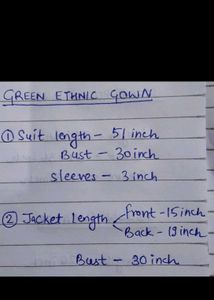 GREEN ETHNIC GOWN
① Suit length - 51 inch
Bust - 30 inch
sleeves - 3 inch
② Jacket length front - 15 inch
Back - 19 inch
Bust - 30 inch